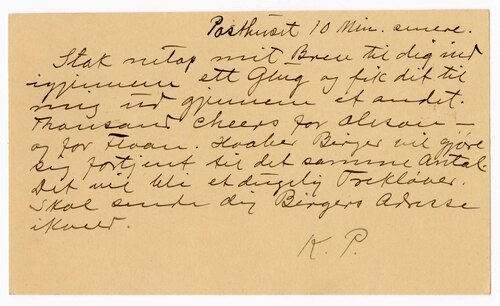 Posthuset 10 Min. senere.
Stak netop mit Brev til dig ind
igjennem ett Glug og fik dit til
mig ud gjennem et andet.
Thousand cheers for Olsson —
og for Floan. Haaber Birger vil gjøre
sig fortjent til det samme Antal
Det vil bli et dygtig Trekløver.
Skal sende dig Birgers Adresse
ikveld.
K. P.